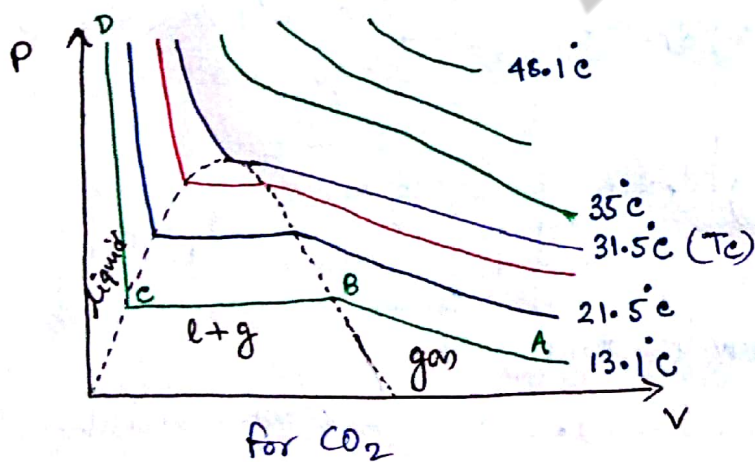 D
P
48.1°C
35°C
31.5°C (Tc)
21.5°C
13.1°C
liquid
C
B
A
l+g
gas
V
for CO₂